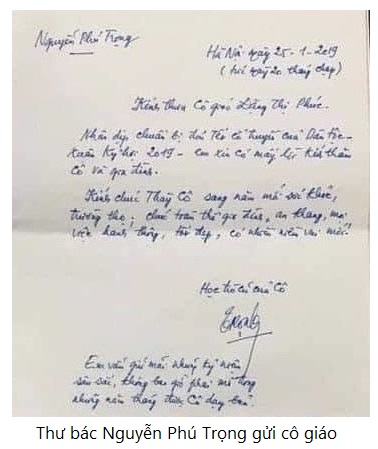 Nguyễn Phú Trọng
Hà Nội ngày 25-1-2019
(tức ngày 20 tháng chạp)
Kính thưa Cô giáo Đặng Thị Phúc.
Nhân dịp chuẩn bị đón Tết cổ truyền của Dân tộc -
Xuân Kỷ hợi 2019 - em xin có mấy lời kính thăm
Cô và gia đình.
Kính chúc Thầy Cô sang năm mới sức khoẻ,
trường thọ; chúc toàn thể gia đình, an khang, mọi
việc hanh thông, tốt đẹp, có nhiều niềm vui mới.
Học trò cũ của Cô
Trọng
Em vẫn giữ mãi những kỷ niệm
sâu sắc, không bao giờ phai mờ trong
những năm tháng được Cô dạy bảo.
Thư bác Nguyễn Phú Trọng gửi cô giáo